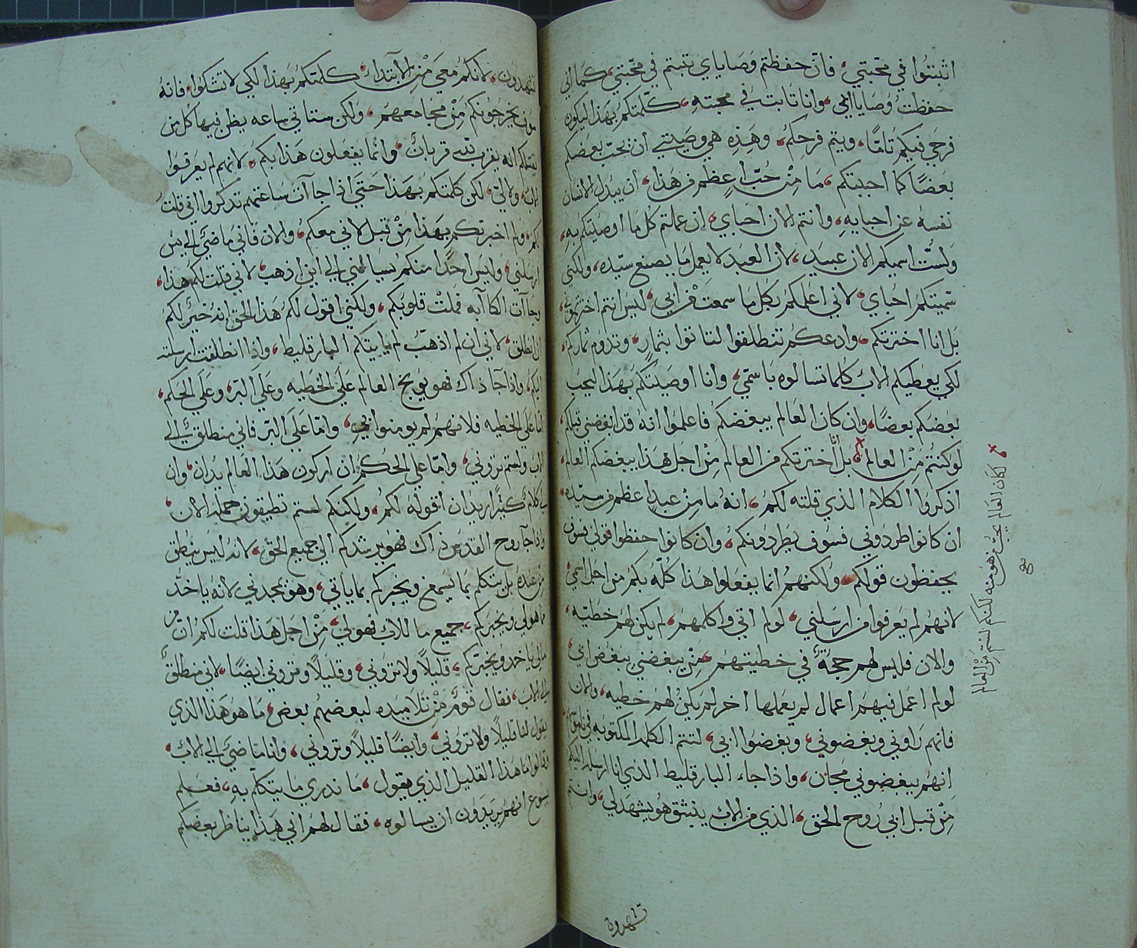 اثبتوا في محبتي، فان حفظتم وصاياي تثبتم في محبتي، كما اني
حفظت وصايا ابي، وانا ثابت في محبته، كلمتكم بهذا ليكون
فرحي فيكم تامًا، ويتم فرحكم، وهذه هي وصيتي ان يحب بعضكم
بعضًا كما احببتكم، ما من حُبّ اعظم من هذا، ان يبدل الانسان
نفسه عن احبايه، وانتم الان احباي، ان عملتم كل ما اوصيتكم به،
ولست اسميكم الان عبيد، لان العبد لا يعلم ما يصنع سيّده، ولكني
سميتكم احباي، لاني اعلمكم بكل ما سمعت من ابي، ليس انتم اخترتموني
بل انا اخترتكم، وادعكم تنطلقوا لتاتوا بثمارٍ، وتدوم ثماركم،
لكي يعطيكم الاب كلما تسالوه باسمي، وانا اوصيتكم بهذا ليحب
بعضكم بعضًا، وان كان العالم يبغضكم فاعلموا انه قد ابغضني قبلكم
لو كنتم من العالم، بل اخترتكم من العالم من اجل هذا يبغضكم العالم،
اذكروا الكلام الذي قلته لكم، انه ما من عبدٍ اعظم من سيّده
ان كانوا طردوني فسوف يطردونكم، وان كانوا حفظوا قولي فسوف
يحفظون قولكم، ولكنهم انما يفعلوا هذا كلّه بكم من اجل اسمي
لانهم لم يعرفوا من ارسلني، لو لم اتي واكلمهم، لم يكن لهم خطيه،
والان فليس لهم حجةٌ في خطيتهم، من يبغضني يبغض ابي
لو لم اعمل فيهم اعمال لم يعملها اخر لم يكن لهم خطيه، والان
فانهم راوني وبغضوني، وبغضوا ابي، لتتم الكلمه المكتوبه في ناموسهم
انهم يبغضوني مجان، واذا جاء البارقليط الذي انا ارسله اليكم
من قبل ابي روح الحق، الذي من الاب ينبثق هو يشهد لي، وانتم
كان العالم يحب من هو منه لكنكم لستم من العالم
صح
تشهدون
تشهدون، لانكم معي من الابتدا، كلمتكم بهذا لكي لا تشكوا، فانه
سوف يخرجونكم من مجامعهم، ولكن ستاتي ساعه يظن فيها كل من
يقتلكم انه يقرب لله قربان، وانما يفعلون هذا بكم، لانهم لم يعرفوا
ابي، ولا لي، لكن كلمتكم بهذا حتى اذا جاات ساعتهم تذكروا اني قلت
لكم، ولم اخبرتكم بهذا من قبل لاني معكم، والان فاني ماضي الي من
ارسلني، وليس احدًا منكم يسالني الي اين اذهب، لاني قلت لكم هذا،
وجاات الكاابه فملت قلوبكم، ولكني اقول لكم هذا الحق، انه خيرٌ لكم
ان انطلق، لاني ان لم اذهب لم ياتيكم البارقليط، واذا انطلقت ارسلته
اليكم، واذا جا ذاك فهو يوبخ العالم على الخطيه وعلى البر، وعلى الحكم،
اما على الخطيه فلانهم لم يومنوا بي، واما على البر فاني منطلق الي
الاب ولستم تروني، واما على الحكم ان اركون هذا العالم يدان، وان
لي كلام كثيرًا اريد ان اقوله لكم، ولكنكم لستم تطيقون حمله الان،
واذا جا روح القدس ذاك فهو يرشدكم الي جميع الحق، لانه ليس ينطق
من عنده بل يتكلم بما يسمع ويخبركم بما ياتي، وهو يمجدني لانه ياخذ
مما هو لي ويخبركم، جميع ما للاب فهو لي، من اجل هذا قلت لكم ان
مما لي ياخد ويخبركم، قليلًا ولا تروني، وقليلًا وتروني ايضًا، لاني منطلق
الي الاب، فقال قومٌ من تلاميده لبعضهم بعض، ما هو هذا الذي
يقول لنا قليلًا ولا تروني، وايضًا قليلًا وتروني، وانا ماضي الي الاب،
وقالوا ما هذا القليل الذي يقول، ما ندري ما يتكلم به، فعلم
يسوع انهم يريدون ان يسالوه، فقال لهم افي هذا يناظر بعضكم